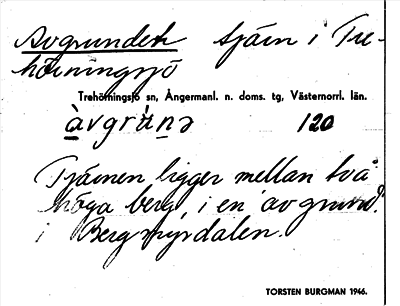 Avgrunden tjärn i Tre-
hörningsjö
Trehörningsjö sn, Ångermanl. n. doms. tg, Västernorrl. län.
àvgrúnə 120
Tjärnen ligger mellan två
höga berg, i en "avgrund"
i Bergmyrdalen.
TORSTEN BURGMAN 1946.